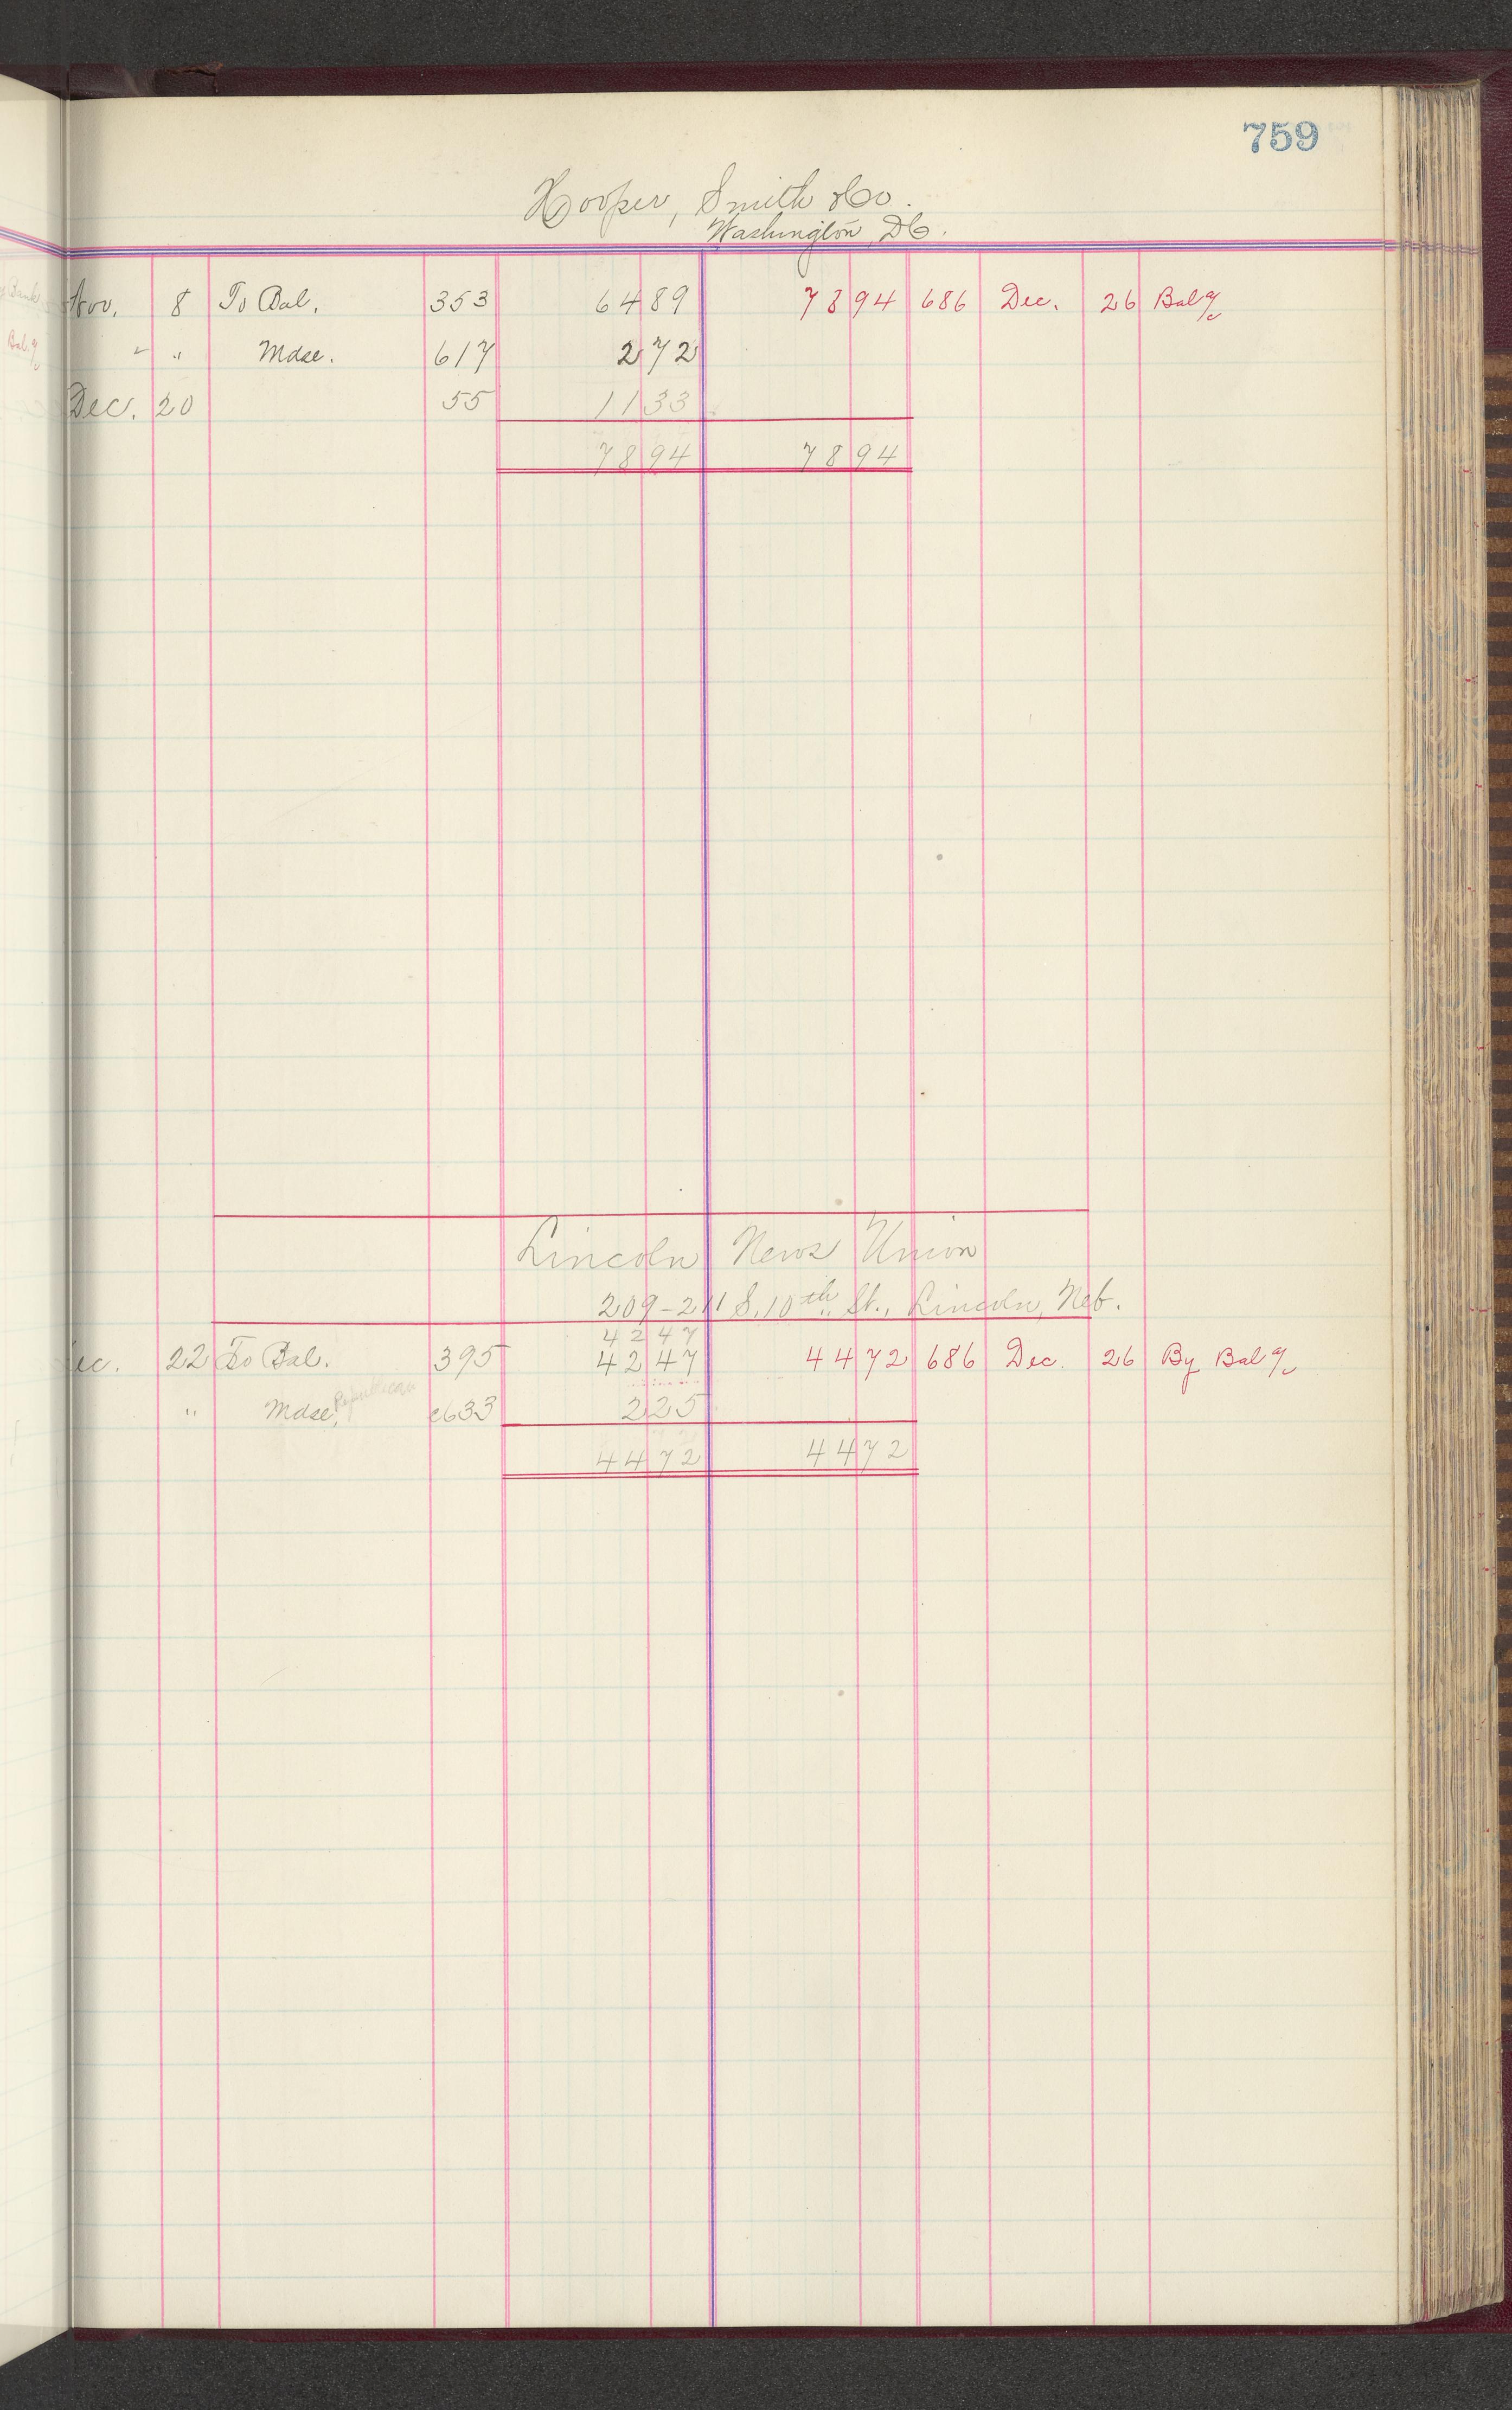 759
Hooper, Smith & Co.
Washington, DC.
Nov. 8 To Bal. 353 64 89 78 94 686 Dec. 26 Bal a/c
" " Mdse. 617 2 72
Dec. 20 55 11 33
78 94 78 94
Lincoln News Union
209-211 S. 10th St., Lincoln, Neb.
42 47
ec. 22 To Bal. 395 42 47 44 72 686 Dec. 26 By Bal a/c
" Mdse, Republican c633 2 25
44 72 44 72